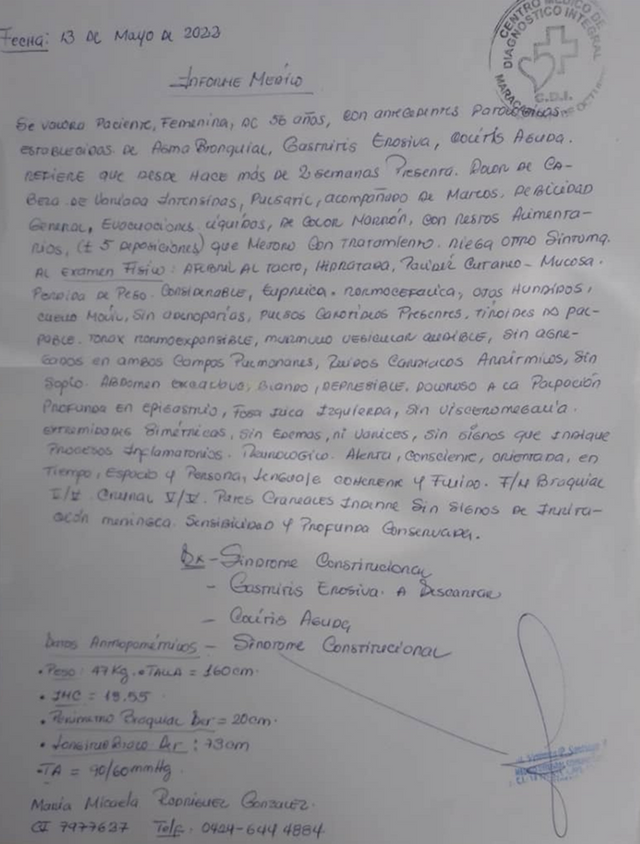 Fecha: 13 de Mayo de 2022
CENTRO MÉDICO DE
DIAGNOSTICO INTEGRAL
C.D.I.
Informe Medico
Se valora Paciente, Femenina, de 56 años, con antecedentes Patologicos
establecidos de Asma Bronquial, Gastritis Erosiva, Colitis Aguda.
Refiere que desde hace más de 2 semanas Presenta. Dolor de Ca-
beza de Variada Intensidad, Pulsatil, acompañado de Mareos. Debilidad
General, Evacuaciones liquidas, de Color Marrón, con Restos Alimenta-
rios, (± 5 Deposiciones) que Mejoro Con Tratamiento. Niega otro Sintoma.
Al Examen Fisico: Afebril Al Tacto, Hidratada, Palidez Cutaneo - Mucosa.
Perdida de Peso. Considerable, Eupneica. Normocefalica, ojos Hundidos,
cuello Movil, Sin adenopatias, pulsos Carotideos Presentes, tiroides no pal-
pable. Torax normoexpansible, murmullo vesicular audible, sin agre-
gados en ambos Campos Pulmonares, Ruidos Cardiacos Arritmicos, Sin
Soplo. Abdomen Blando, DEPRESIBLE, Doloroso a la Palpación
Profunda en epigastrio, Fosa Iliaca Izquierda, Sin Visceromegalia.
Extremidades Simétricas, Sin Edemas, ni Varices, Sin Signos que Indique
Procesos Inflamatorios. Neurologico. Alerta, Consciente, orientada, en
Tiempo, Espacio y Persona, Lenguaje coherente y Fluido. F/M Braquial
V/V. Crural V/V. Pares Craneales Indemne Sin Signos de Irrita-
ción meningea. Sensibilidad y Profunda Conservada.
Dx - Sindrome Constitucional
- Gastritis Erosiva. A Descartar
- Colitis Aguda
Datos Antropométricos - Sindrome Constitucional
• Peso: 47 Kg. • Talla = 160 cm.
• IMC =
• Perimetro Braquial Der = 20cm.
• Longitud Brazo Der: 73cm
• TA = 90/60mmHg.
Maria Micaela Rodriguez Gonzalez.
CI 7977637 Telf. 0424-644 4884